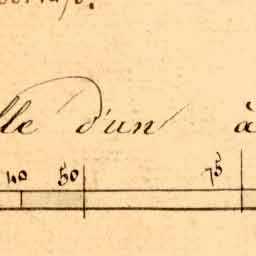 lle d'un à
40 50 75